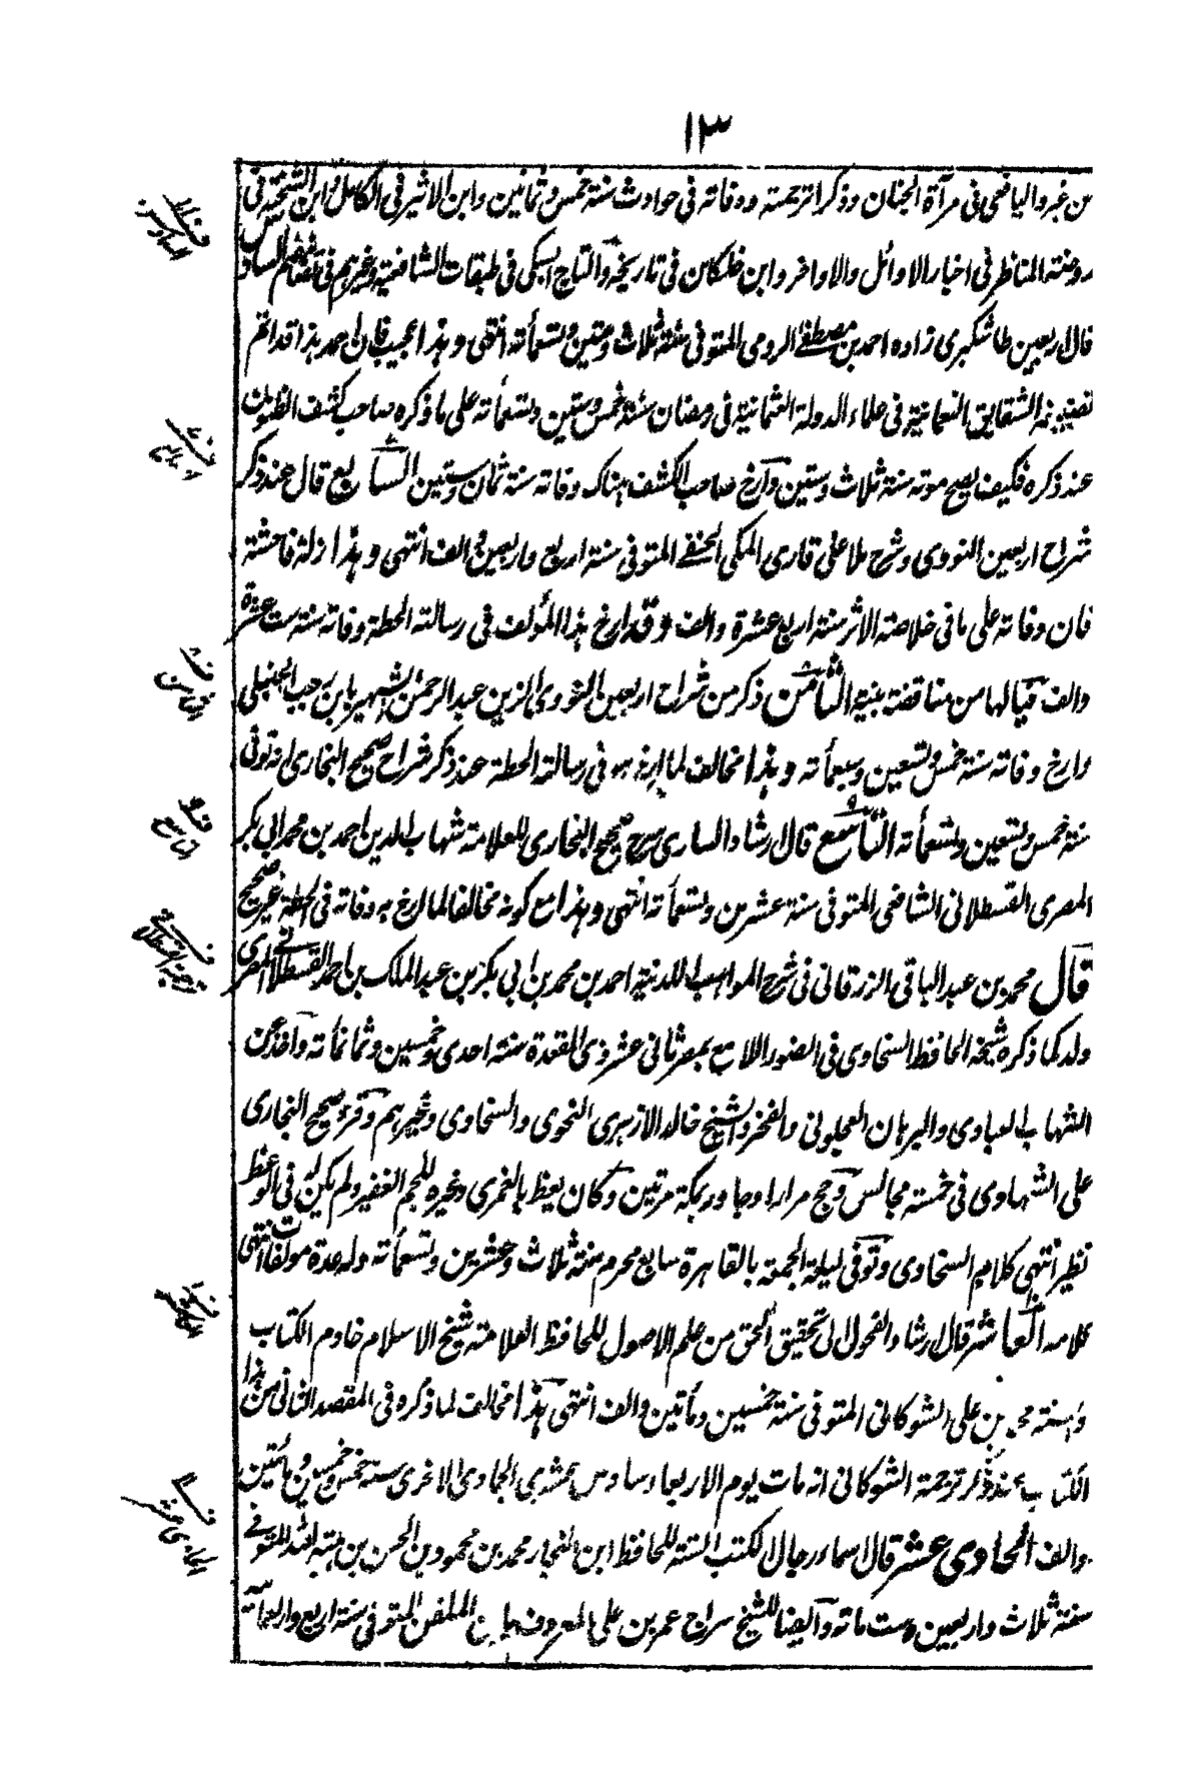 ١٣
من غبر واليافعى فى مرآة الجنان وذكرا ترجمته ووفاته فى حوادث سنة خمس وثمانين وابن الاثير فى الكامل وابن الشحنة فى
روضة المناظر فى اخبار الاوائل والاواخر وابن خلكان فى تاريخه والتاج السبكى فى طبقات الشافعية وغيرهم فى تصانيفهم السادس
قال اربعين طاشكبرى زاده احمد بن مصطفى الرومى المتوفى سنة ثلاث وستين وتسعمأته انتهى وهذا عجيب فان احمد هذا قد اتم
تصنيفه الشقايق النعمانية فى علماء الدولة العثمانية فى رمضان سنة خمس وستين وتسعمأته على ما ذكره صاحب كشف الظنون
عند ذكره فكيف يصح موته سنة ثلاث وستين وارخ صاحب الكشف هناك وفاته سنة ثمان وستين السابع قال عند ذكر
شراح اربعين النووى وشرح ملا على قارى المكى الحنفى المتوفى سنة اربع واربعين والف انتهى وهذا زلة فاحشة
فان وفاته على ما فى خلاصة الاثر سنة اربع عشرة والف وقد ارخ هذا المؤلف فى رسالته الحطة وفاته سنة ست عشرة
والف فيالها من مناقضة بينة الثامن ذكر من شراح اربعين النووى الزين عبد الرحمن الشهير بابن رجب الحنبلى
وارخ وفاته سنة خمس وتسعين وسبعمأته وهذا مخالف لما ارخه هو فى رسالته الحطة عند ذكر شراح صحيح البخارى انه توفى
سنة خمس وتسعين وتسعمأته التاسع قال ارشاد السارى شرح صحيح البخارى للعلامة شهاب الدين احمد بن محمد ابى بكر
المصرى القسطلانى الشافعى المتوفى سنة عشرين وتسعمأته انتهى وهذا مع كونه مخالفا لما ارخ به وفاته فى الحطة غير صحيح
قال محمد بن عبد الباقى الزرقانى فى شرح المواهب اللدنية احمد بن محمد بن ابى بكر بن عبد الملك بن احمد القسطلانى المصرى
ولد كما ذكره شيخه الحافظ السخاوى فى الضوء اللامع بمصر ثانى عشر ذى القعدة سنة احدى وخمسين وثمانمأته واخذ عن
الشهاب العبادى والبرهان العجلونى والفخر والشيخ خالد الازهرى النحوى والسخاوى وغيرهم وقرء صحيح البخارى
على الشهاوى فى خمسة مجالس وحج مرارا وجاور بمكة مرتين وكان يعظ بالغمرى وغيره للجم الغفير ولم يكن له فى الوعظ
نظير انتهى كلام السخاوى وتوفى ليلة الجمعة بالقاهرة سابع محرم سنة ثلاث وعشرين وتسعمأته وله عدة مولفات انتهى
كلامه العاشر قال ارشاد الفحول الى تحقيق الحق من علم الاصول للحافظ العلامة شيخ الاسلام خادم الكتاب
والسنة محمد بن على الشوكانى المتوفى سنة خمسين ومأتين والف انتهى هذا مخالف لما ذكره فى المقصد الثانى من هذا
الكتاب عند ذكر ترجمة الشوكانى انه مات يوم الاربعا وسادس عشرى الجمادى الاخرى سنة خمس وخمسين ومأتين
والف الحادى عشر قال اسماء رجال الكتب الستة للحافظ ابن النجار محمد بن محمود بن الحسن بن هبة الله المتوفى
سنة ثلاث واربعين وست مائة وايضا للشيخ سراج عمر بن على المعروف بابن الملقن المتوفى سنة اربع واربعمأية